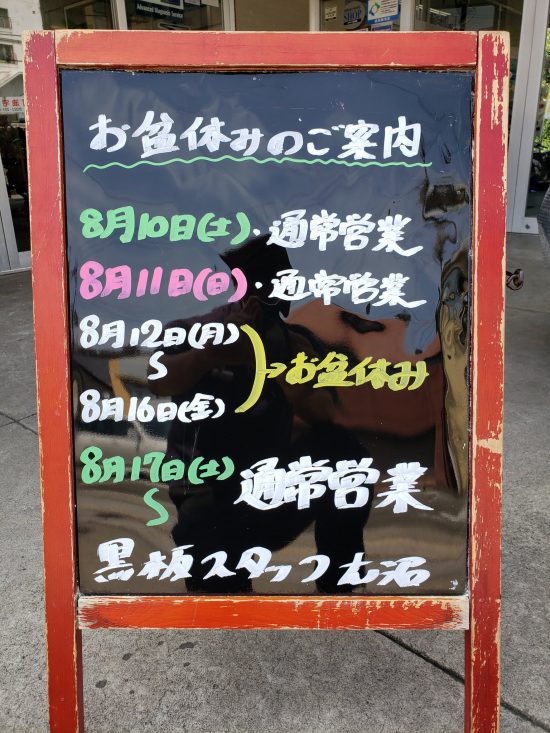 Advanced Diagnostic Service
SHOP
お盆休みのご案内
8月10日(土)・通常営業
8月11日(日)・通常営業
8月12日(月)
S
8月16日(金)
→お盆休み
8月17日(土)
S
通常営業
黒板スタッフ大沼